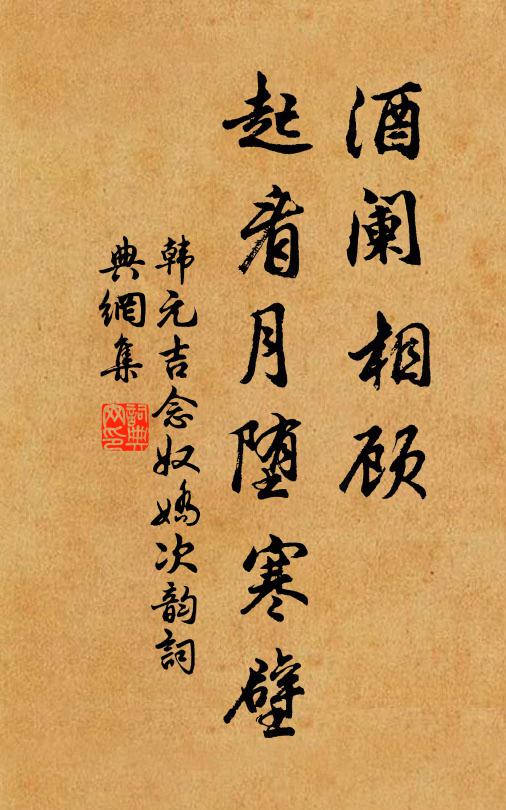 酒阑相顾
起看月堕寒壁
韩元吉念奴嬌次韵詞
典網集
詞典
网印